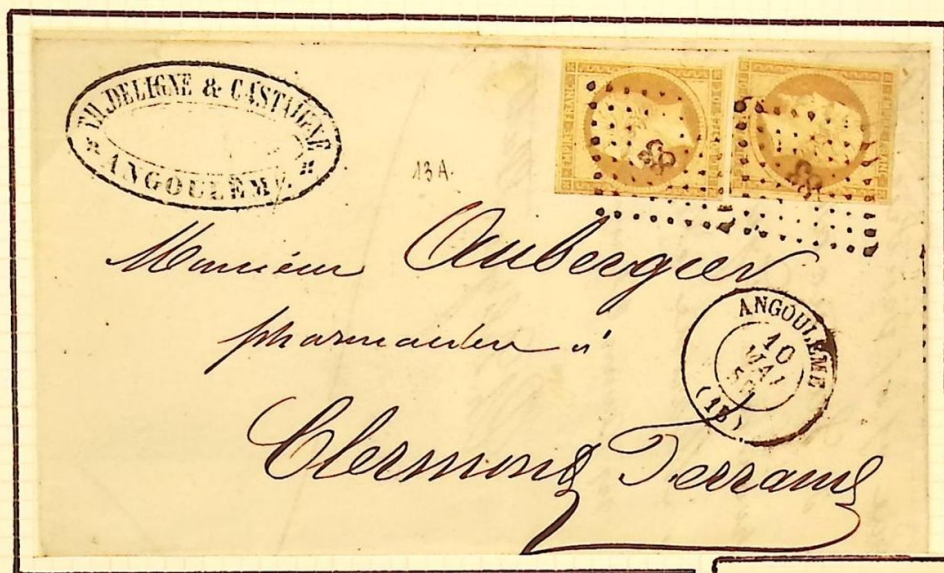 TH. DELIGNE & CASTAIGNE
ANGOULÊME
EMPIRE FRANC
88
88
13A.
Monsieur Aubergier
pharmacien à
Clermont Ferrand
ANGOULÊME
10
MAI
(15)